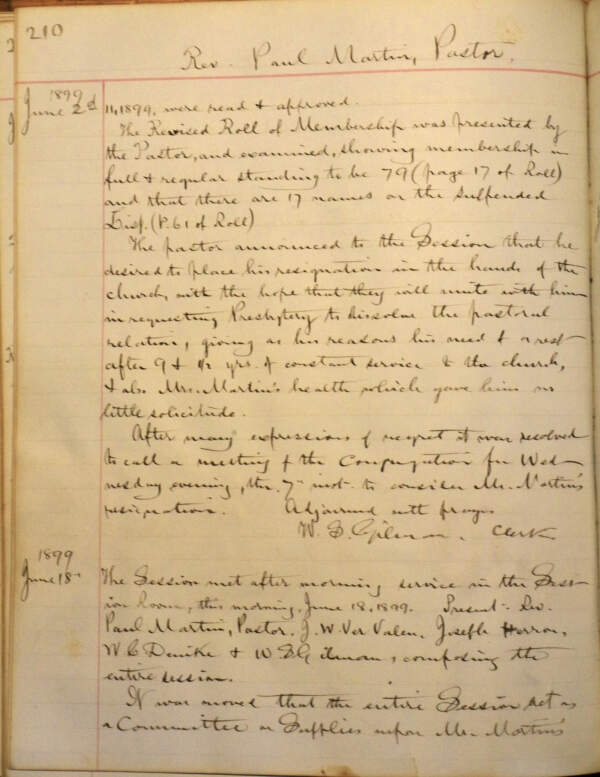 210
Rev. Paul Martin, Pastor.
1899
June 2d
11, 1899, were read & approved.
The Revised Roll of Membership was presented by
the Pastor, and examined, showing membership in
full & regular standing to be 79 (page 17 of Roll)
and that there are 17 names on the suspended
List. (P. 61 of Roll)
The pastor announced to the Session that he
desired to place his resignation in the hands of the
church, with the hope that they will unite with him
in requesting Presbytery to dissolve the pastoral
relation, giving as his reasons his need of a rest
after 9 & 1/2 yrs. of constant service to the church,
& also Mrs. Martin's health which gave him no
little solicitude.
After many expressions of regret it was resolved
to call a meeting of the Congregation for Wed-
nesday evening, the 7th inst. to consider Mr. Martin's
resignation. Adjourned with prayer
W. B. Gilman, Clerk
1899
June 18
The Session met after morning service in the Sess-
ion Room, this morning, June 18, 1899. Present:- Rev.
Paul Martin, Pastor, J. W. Ver Valen, Joseph Herron,
W C Demike & W B Gilman, composing the
entire session.
It was moved that the entire Session act as
a Committee on Supplies upon Mr. Martin's